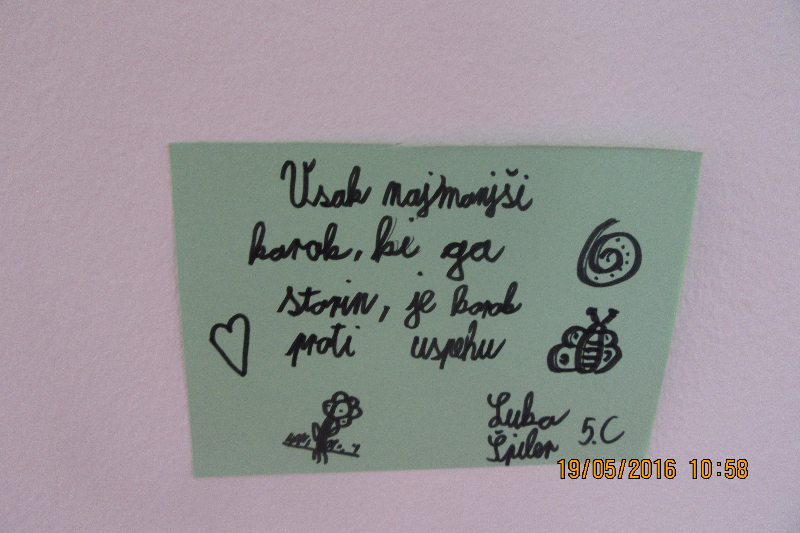 Vsak najmanjši
korak, ki ga
storim, je korak
proti uspehu
Luka 5.C
Špiler
19/05/2016 10:58